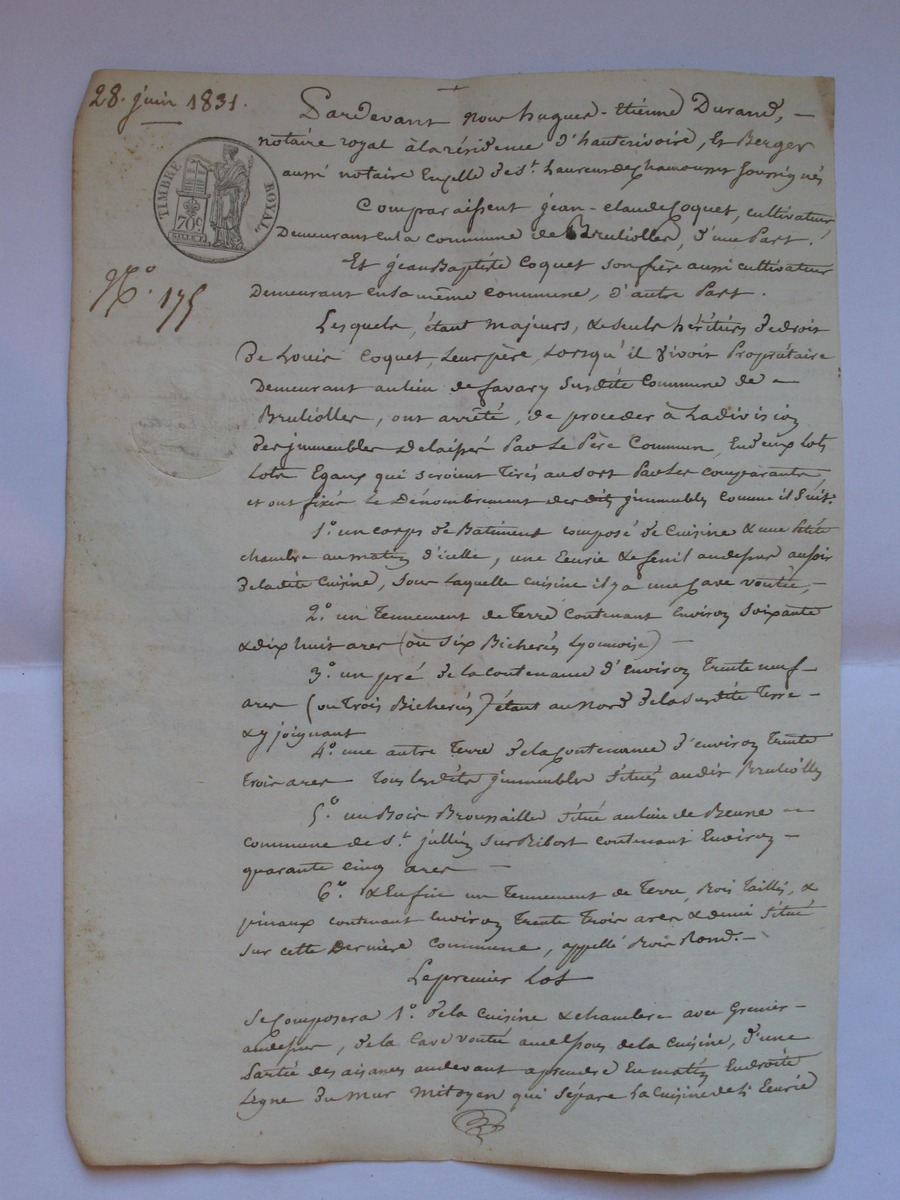 28. juin 1831.
TIMBRE ROYAL
70c
N.o 175
Pardevant nous hugues-Etienne Durand, —
notaire royal à la résidence d'hauterivoire, Et Berger
aussi notaire En celle de St. Laurent de chamousset soussignés
Comparaissent jéan-claude Coquet, cultivateur
Demeurant En la commune de Brulioller, d'une Part.
Et jéan Baptiste Coquet son frère aussi cultivateur
Demeurant En la même commune, d'autre Part.
Lesquels, étant majeurs, & seuls héritiers de droit
De Louis Coquet, Leur père, Lorsqu'il vivoit Propriétaire
Demeurant au lieu de favary susdite Commune de —
Bruliolles, ont arrêté, de proceder à La division
des jmmeubles delaissés Par Le Père Commun, En deux Lots
Lots Egaux qui seroient Tirés au sort Par Les comparants
et ont fixé Le Dénombrement des dits jmmeubles Comme il suit.
1.o un corps de Batiment composé de Cuisine & une Petite
chambre au matin d'icelle, une Ecurie & fenil au dessus au soir
de la dite Cuisine, sous Laquelle cuisine il y a une Cave voutée, —
2.o un Tennement de Terre Contenant Environ soixante
& dix huit ares (ou six Bicherés Lyonnoise) —
3.o un pré de la contenance d'Environ Trente neuf
ares (ou Trois Bicherés) étant au nord de la susdite Terre —
& y joignant
4.o une autre Terre de la Contenance d'environ Trente
trois ares Tous Lesdits jmmeubles situés au dit Bruliolles
5.o un Bois Broussaille situé au lieu de Beune —
commune de St. jullien sur Bibost contenant Environ —
quarante cinq ares —
6.o & Enfin un Tennement de Terre, Bois Taillis, &
pinaux contenant Environ Trente Trois ares & demi situé
sur cette Dernière Commune, appellé Bois Rond. —
Le premier Lot
se Composera 1.o de la cuisine & chambre avec Grenier —
au dessus, de la Cave voutée au dessous de la Cuisine, d'une
Partie des aisances au devant a prendre En matin En droite
Ligne du mur mitoyen qui sépare La Cuisine de l'Ecurie